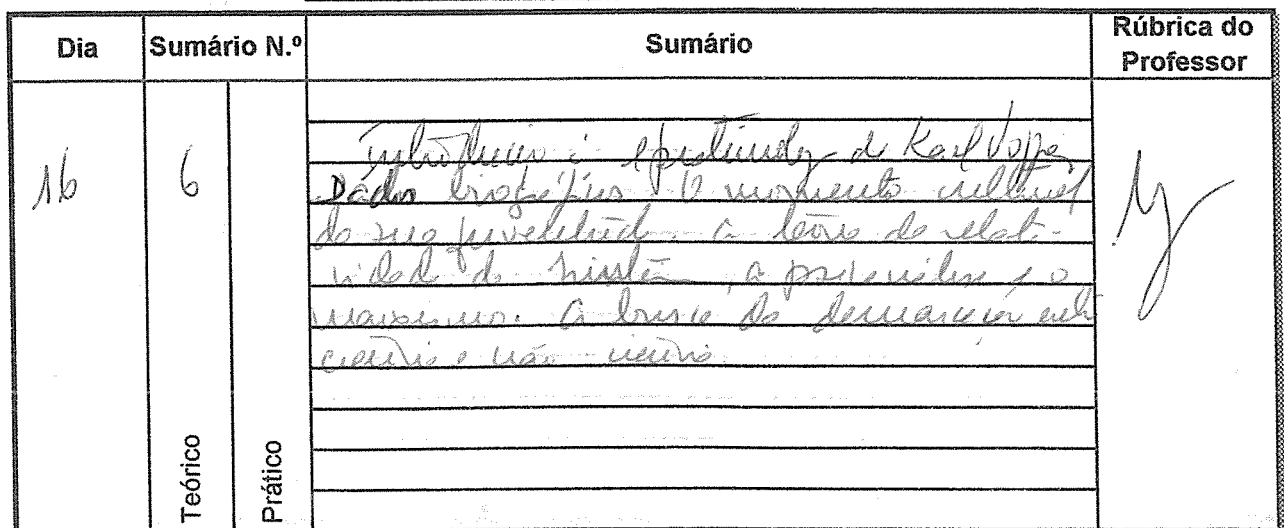 Dia Sumário N.º Sumário Rúbrica do Professor
16 6
Introdução à epistemologia de Karl Popper
Dados biográficos. O momento cultural
da sua juventude. A teoria da relati-
vidade de Einstein, a psicanálise e o
marxismo. A busca da demarcação entre
ciência e não ciência.
Teórico
Prático